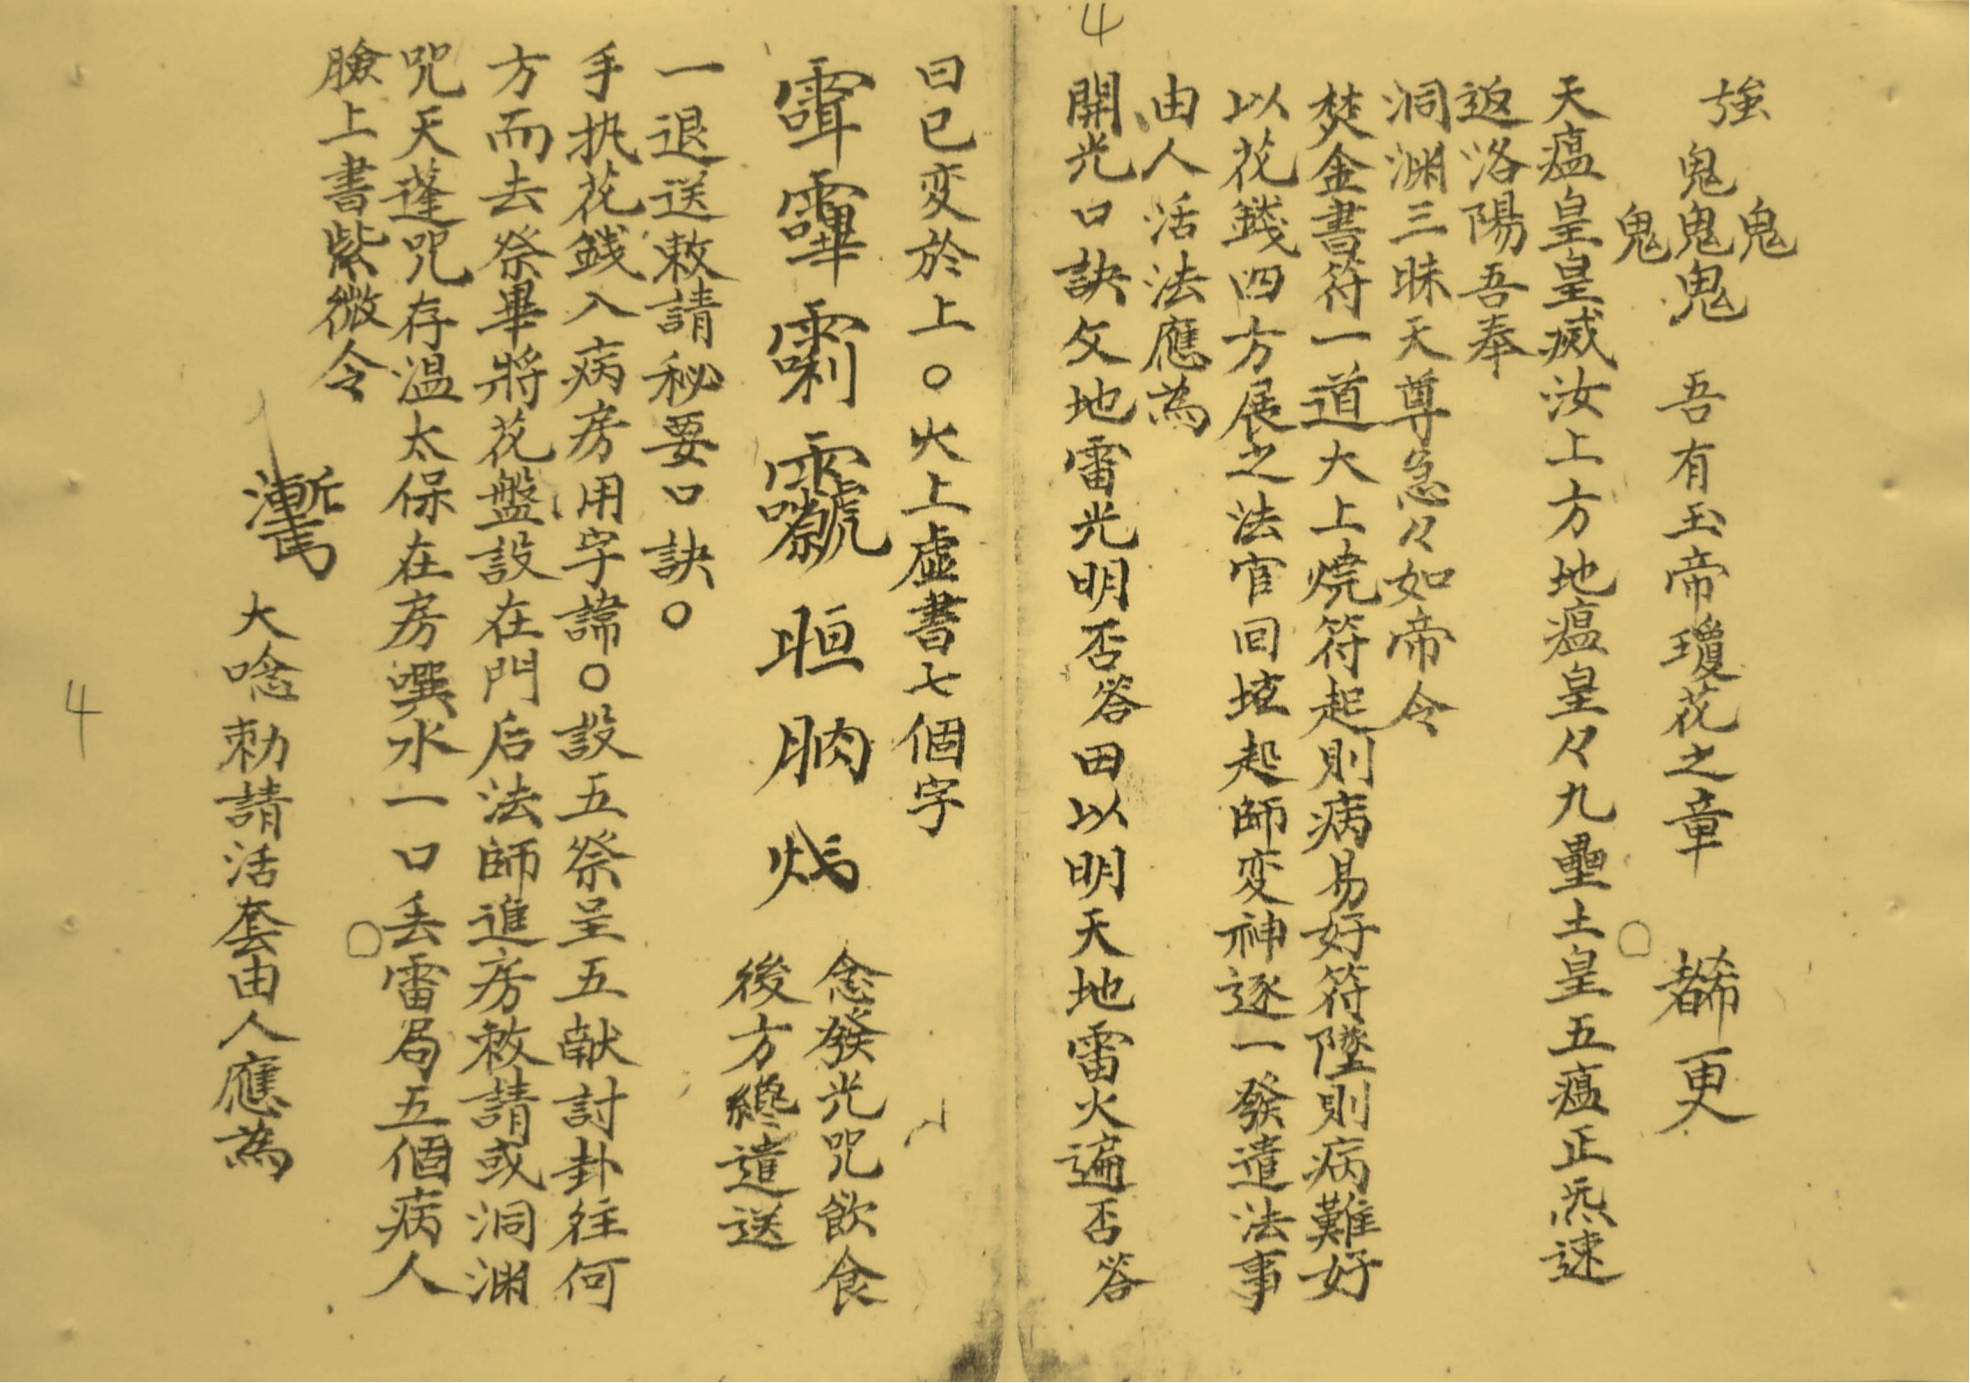 4
強
鬼
鬼鬼鬼
鬼
吾有玉帝瓊花之章
更
天瘟皇皇威汝上方地瘟皇々九壘土皇五瘟正炁速
返洛陽吾奉
洞渊三昧天尊急々如帝令
焚金書符一道大上燒符起則病易好符墜則病難好
以花錢四方展之法官回坛起師变神逐一發遣法事
由人活法應為
開光口訣父地雷光明否答田以明天地雷火遍否答
曰已变於上〇火上虚書七個字
念發光咒飲食
後方纔遣送
一退送敕請秘要口訣〇
手执花錢入病房用字諱〇設五祭呈五献討卦往何
方而去祭畢將花盤設在門后法師進房敕請或洞渊
咒天蓬咒存溫太保在房噀水一口丢雷局五個病人
臉上書紫微令
大唸勅請活套由人應為
4